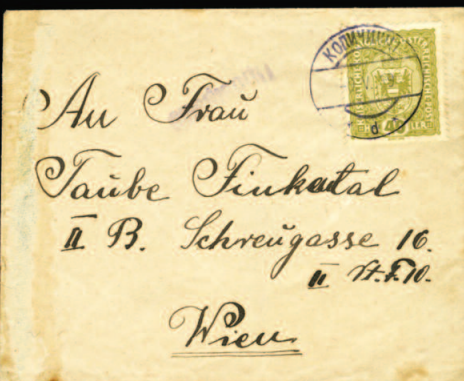 КОПИЧИНЦІ
An Frau
Taube Finkatal
II B. Schreugasse 16.
II St. T. 10.
Wien